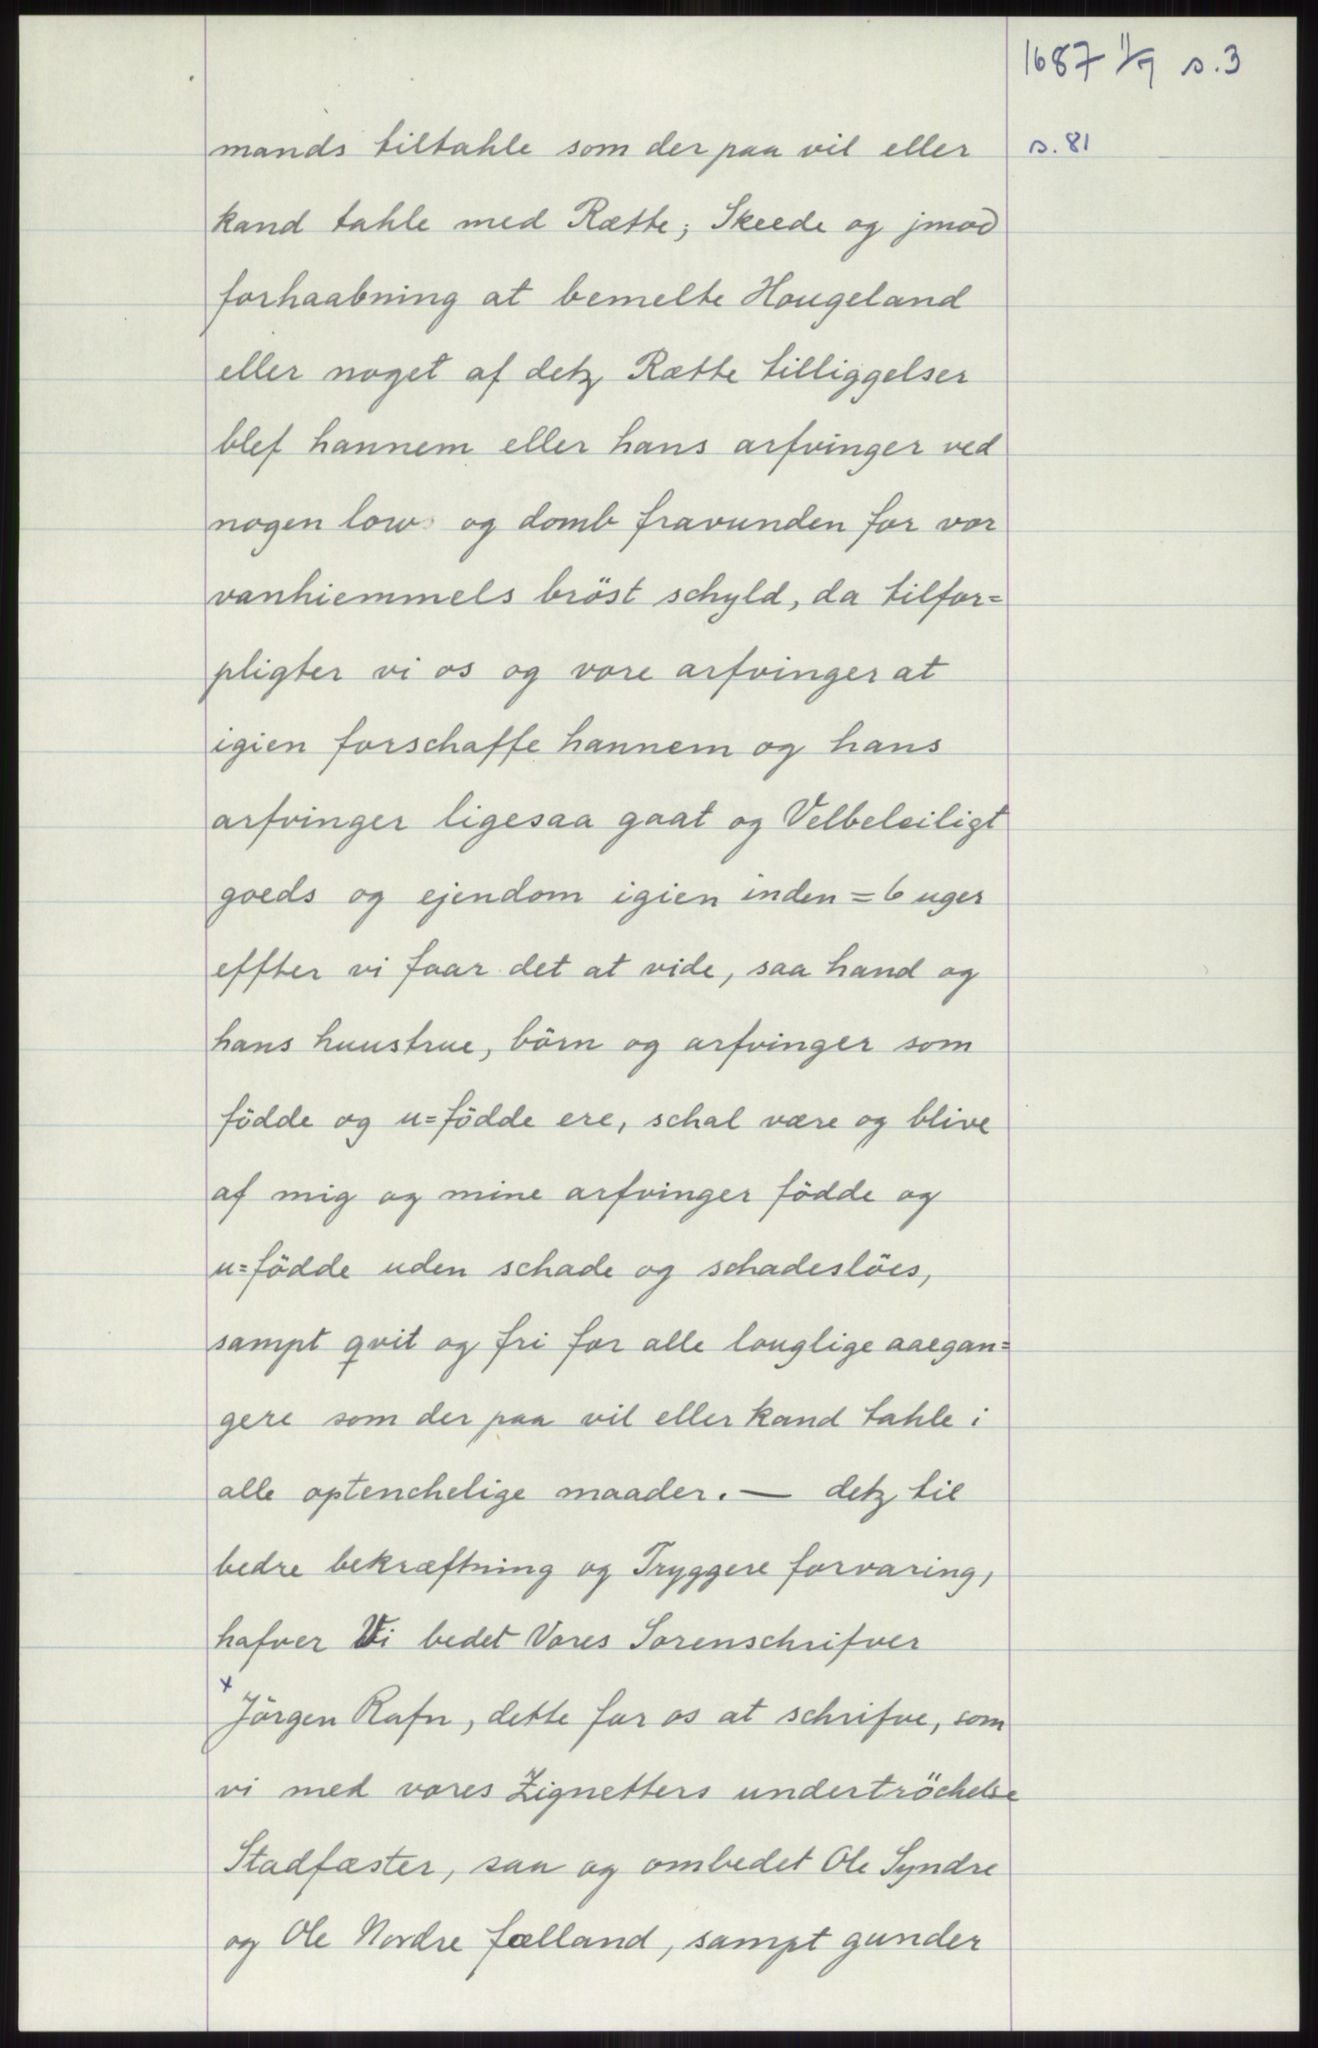 1687 11/9 s.3
s. 81
mands tiltahle som der paa vil eller
kand tahle med Rætte; Skeede og jmod
forhaabning at bemelte Hougeland
eller noget af detz Rætte tilliggelser
blef hannem eller hans arfvinger ved
nogen low og domb fravunden for vor
vanhiemmels bröst schyld, da tilfor=
pligter vi os og vore arfvinger at
igien forschaffe hannem og hans
arfvinger ligesaa gaat og Velbeleiligt
goeds og ejendom igien inden = 6 uger
effter vi faar det at vide, saa hand og
hans huustrue, börn og arfvinger som
födde og u=födde ere, schal være og blive
af mig og mine arfvinger födde og
u=födde uden schade og schadeslöes,
sampt qvit og fri for alle louglige aaegan=
gere som der paa vil eller kand tahle i
alle optenchelige maader. — detz til
bedre bekræftning og Tryggere forvaring,
hafver Vi bedet Vores Sorenschrifver
x Jörgen Rafn, dette for os at schrifve, som
vi med vores Zignetters undertröchelse
Stadfæster, saa og ombedet Ole Syndre
og Ole Nordre fælland, sampt gunder